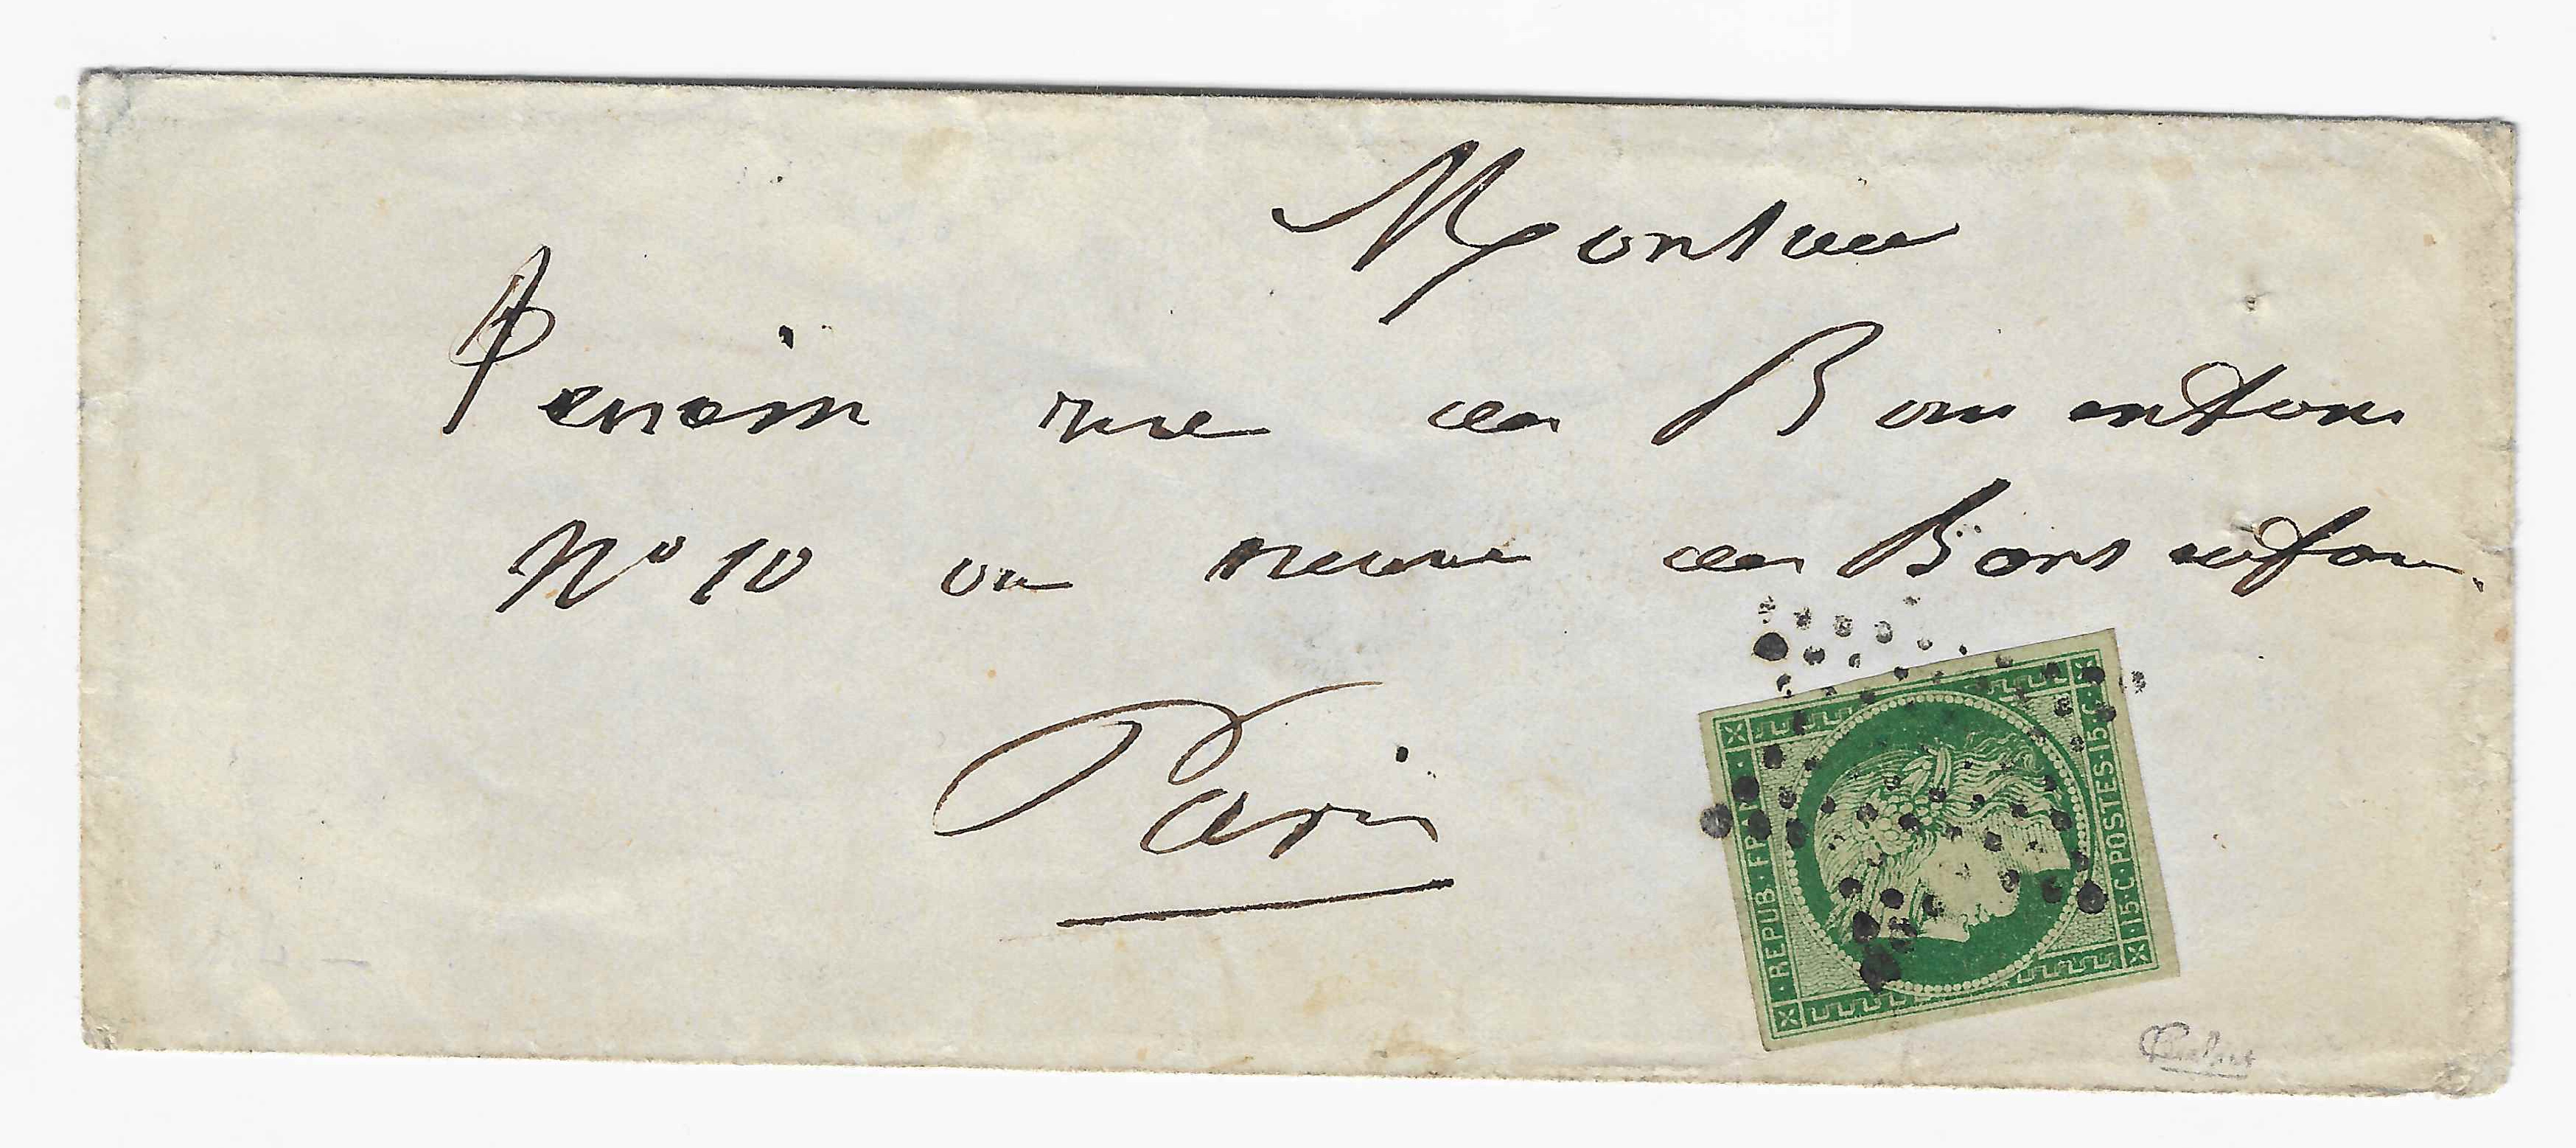 Monsieur
rue des Bons enfans
N° 10 ou neuve des Bons enfans.
Paris
REPUB · FRANC ·
15 · C · POSTES · 15 · C ·